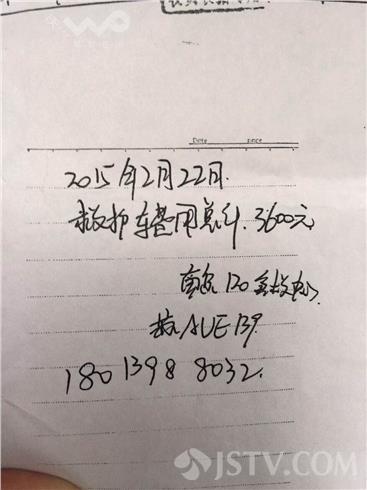 Date
2015年2月22日.
救护车费用总计.3600元
南京120急救中心
苏AUE139.
180 1398 8032.
JSTV.com